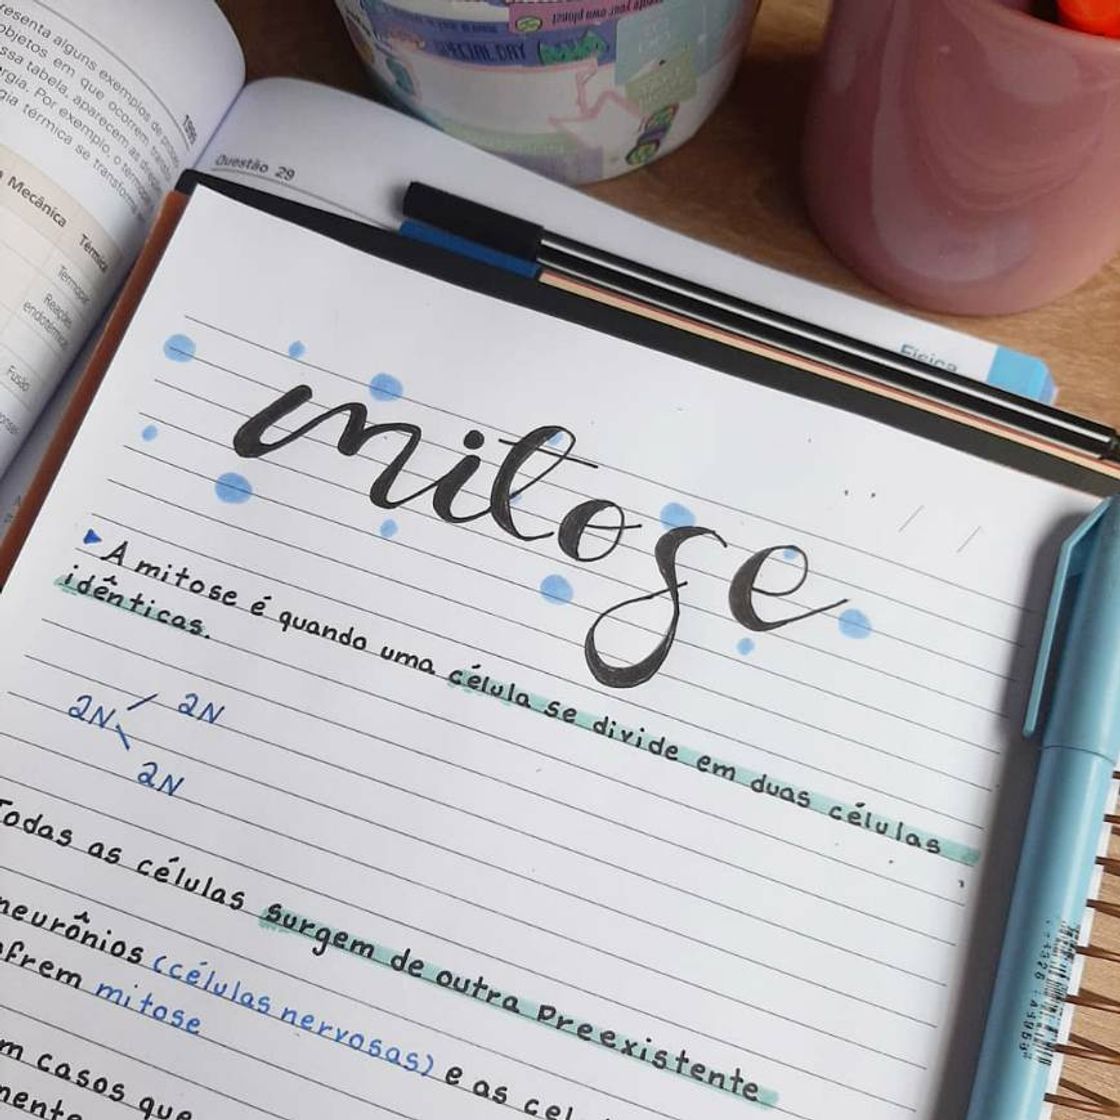 resenta alguns exemplos de
objetos em que ocorrem
ssa tabela, aparecem as
rgia. Por exemplo, o
gia térmica se transforma
1999
Mecânica
Térmica
Fusão
Questão 29
SPECIAL DAY
create your own planet
Física
mitose
A mitose é quando uma célula se divide em duas células
idênticas.
2N 2N
2N
Todas as células surgem de outra preexistente
neurônios (células nervosas) e as cel
frem mitose
m casos que
mente